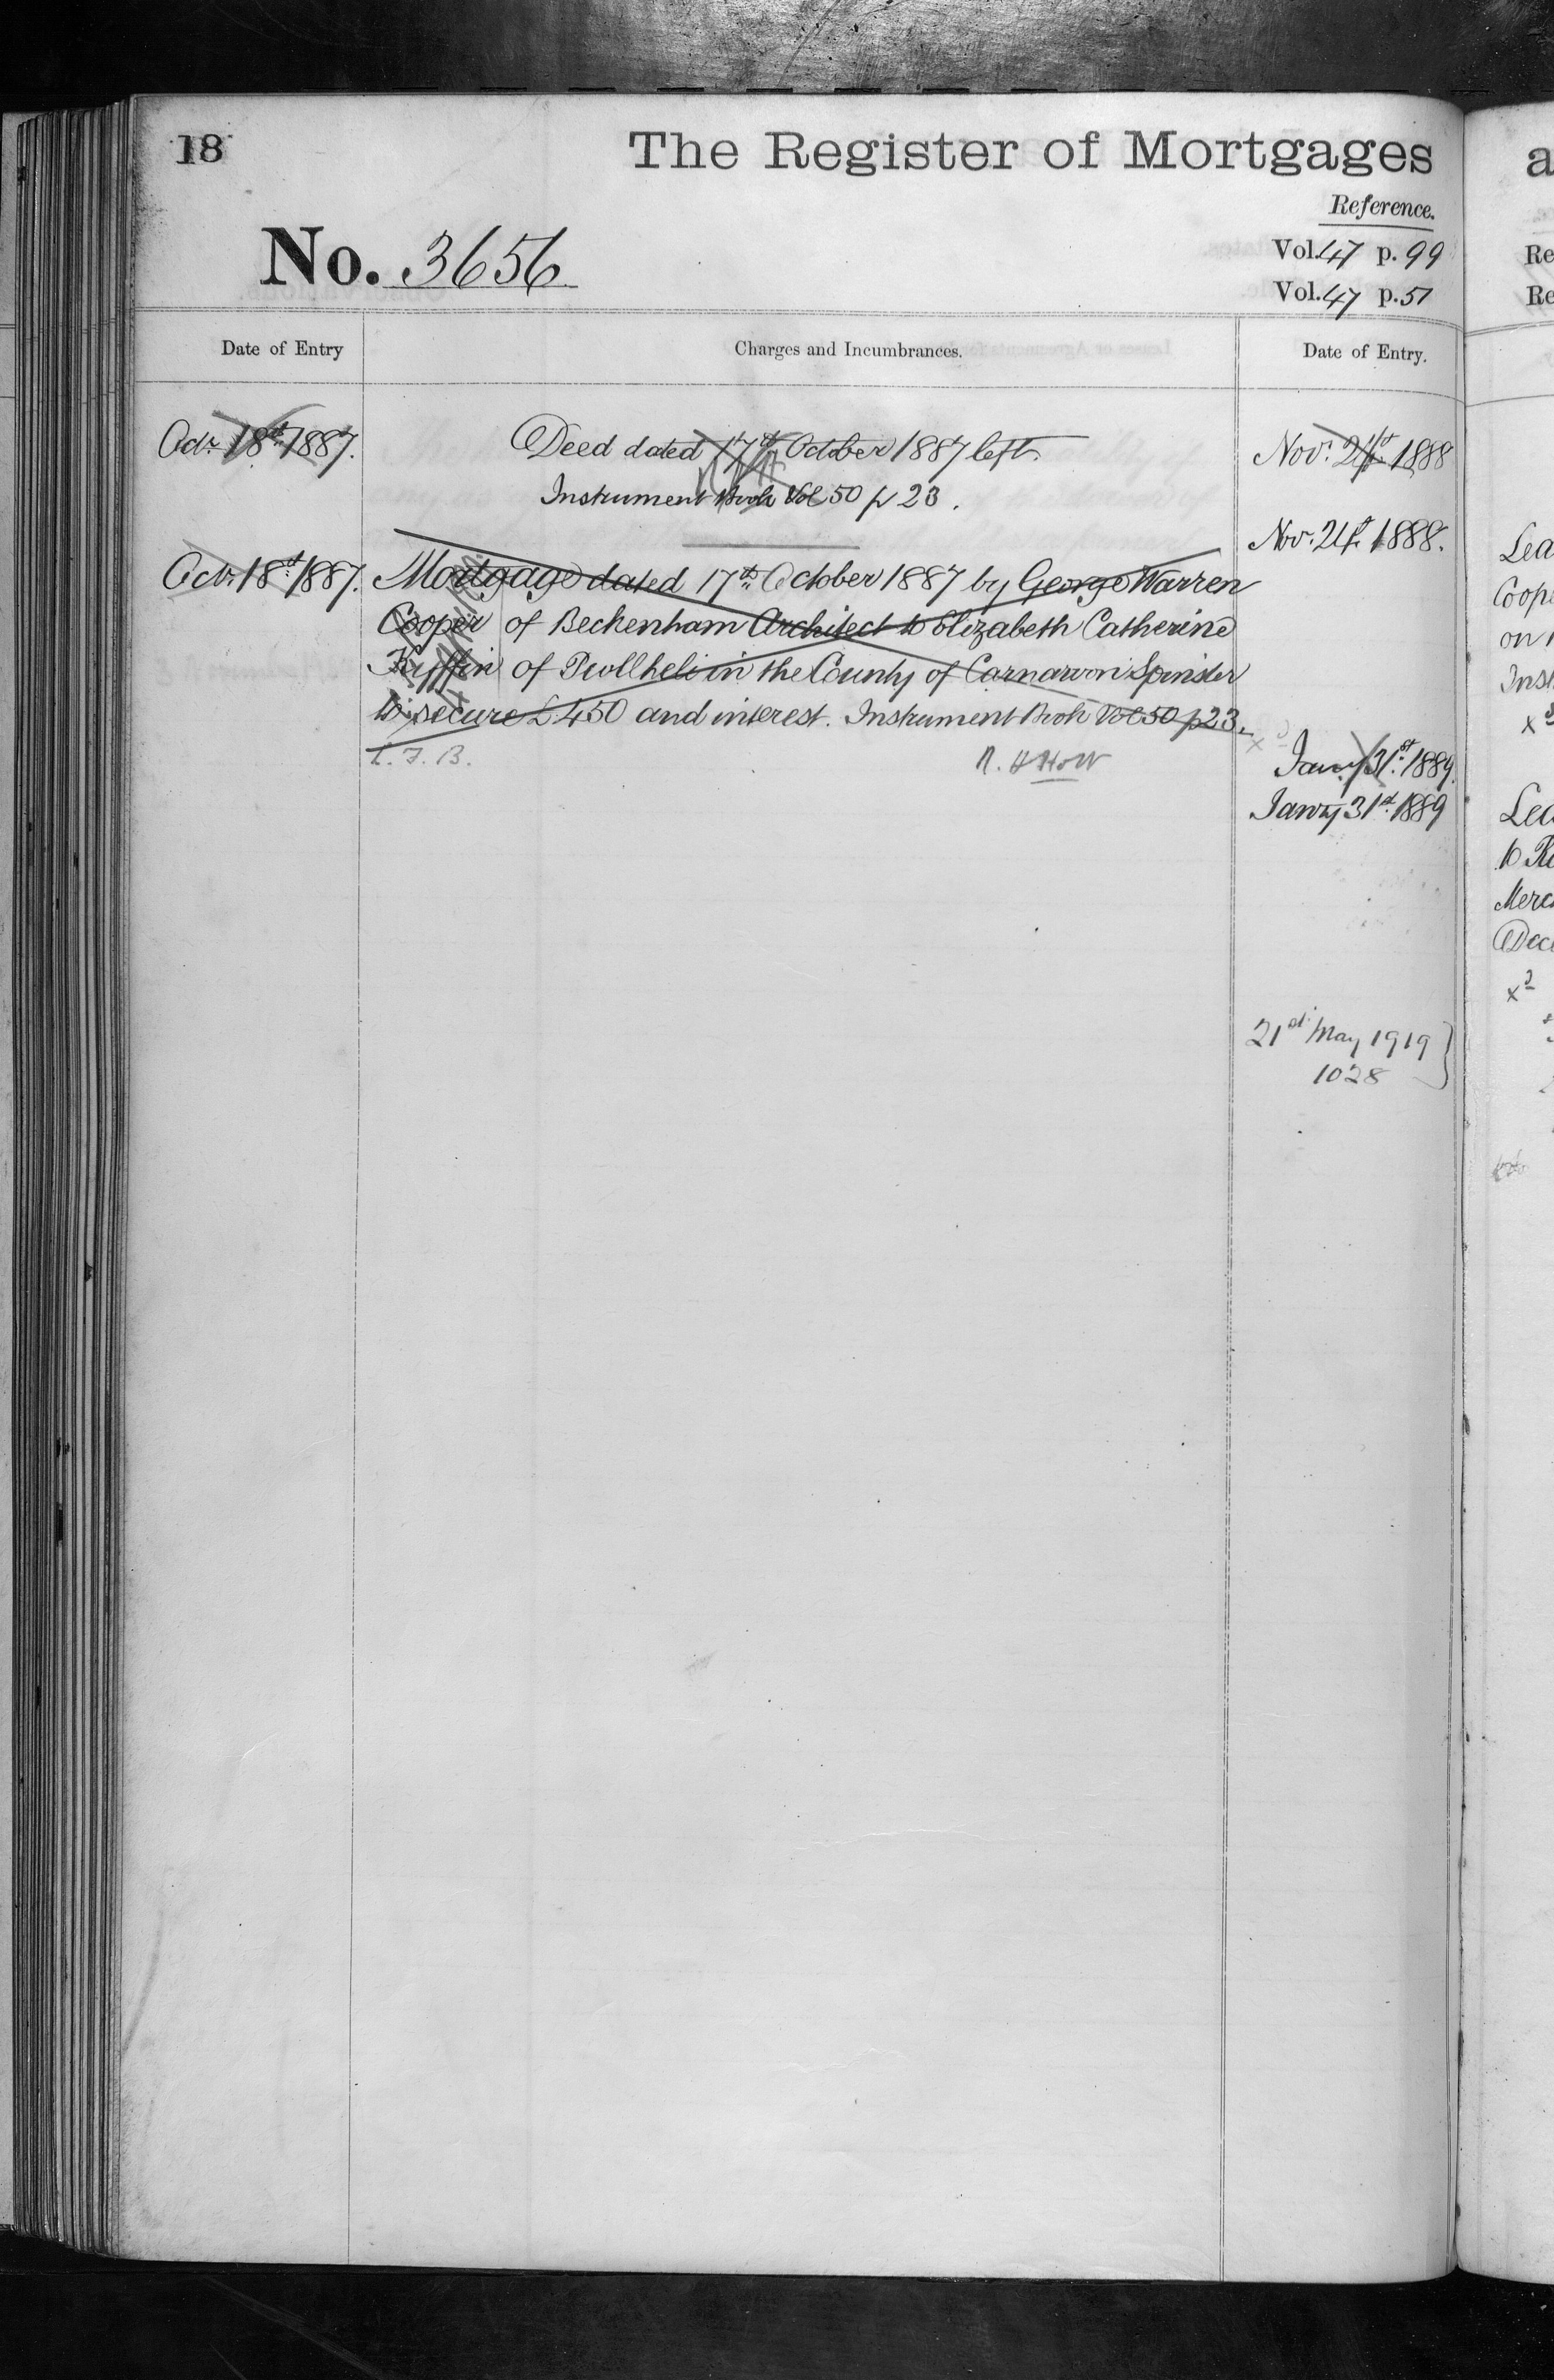 18
The Register of Mortgages
Reference.
No. 3656
Vol. 47 p. 99
Vol. 47 p. 51
Date of Entry
Charges and Incumbrances.
Date of Entry.
Octr. 18th 1887.
Deed dated 17th October 1887 left.
Instrument Book Vol 50 p 23.
Octr. 18th 1887.
Mortgage dated 17th October 1887 by George Warren
Cooper of Beckenham Architect to Elizabeth Catherine
Kyffin of Pwllheli in the County of Carnarvon Spinster
to secure £450 and interest. Instrument Book Vol 50 p 23.
R. H Holt
Novr. 21st 1888
Nov. 21st 1888.
Jany 31st 1889.
Jany 31st 1889
21st May 1919
1028
a
Re
Re
Lea
Coope
on
Inst
x
Lea
to
Merc
Dece
x